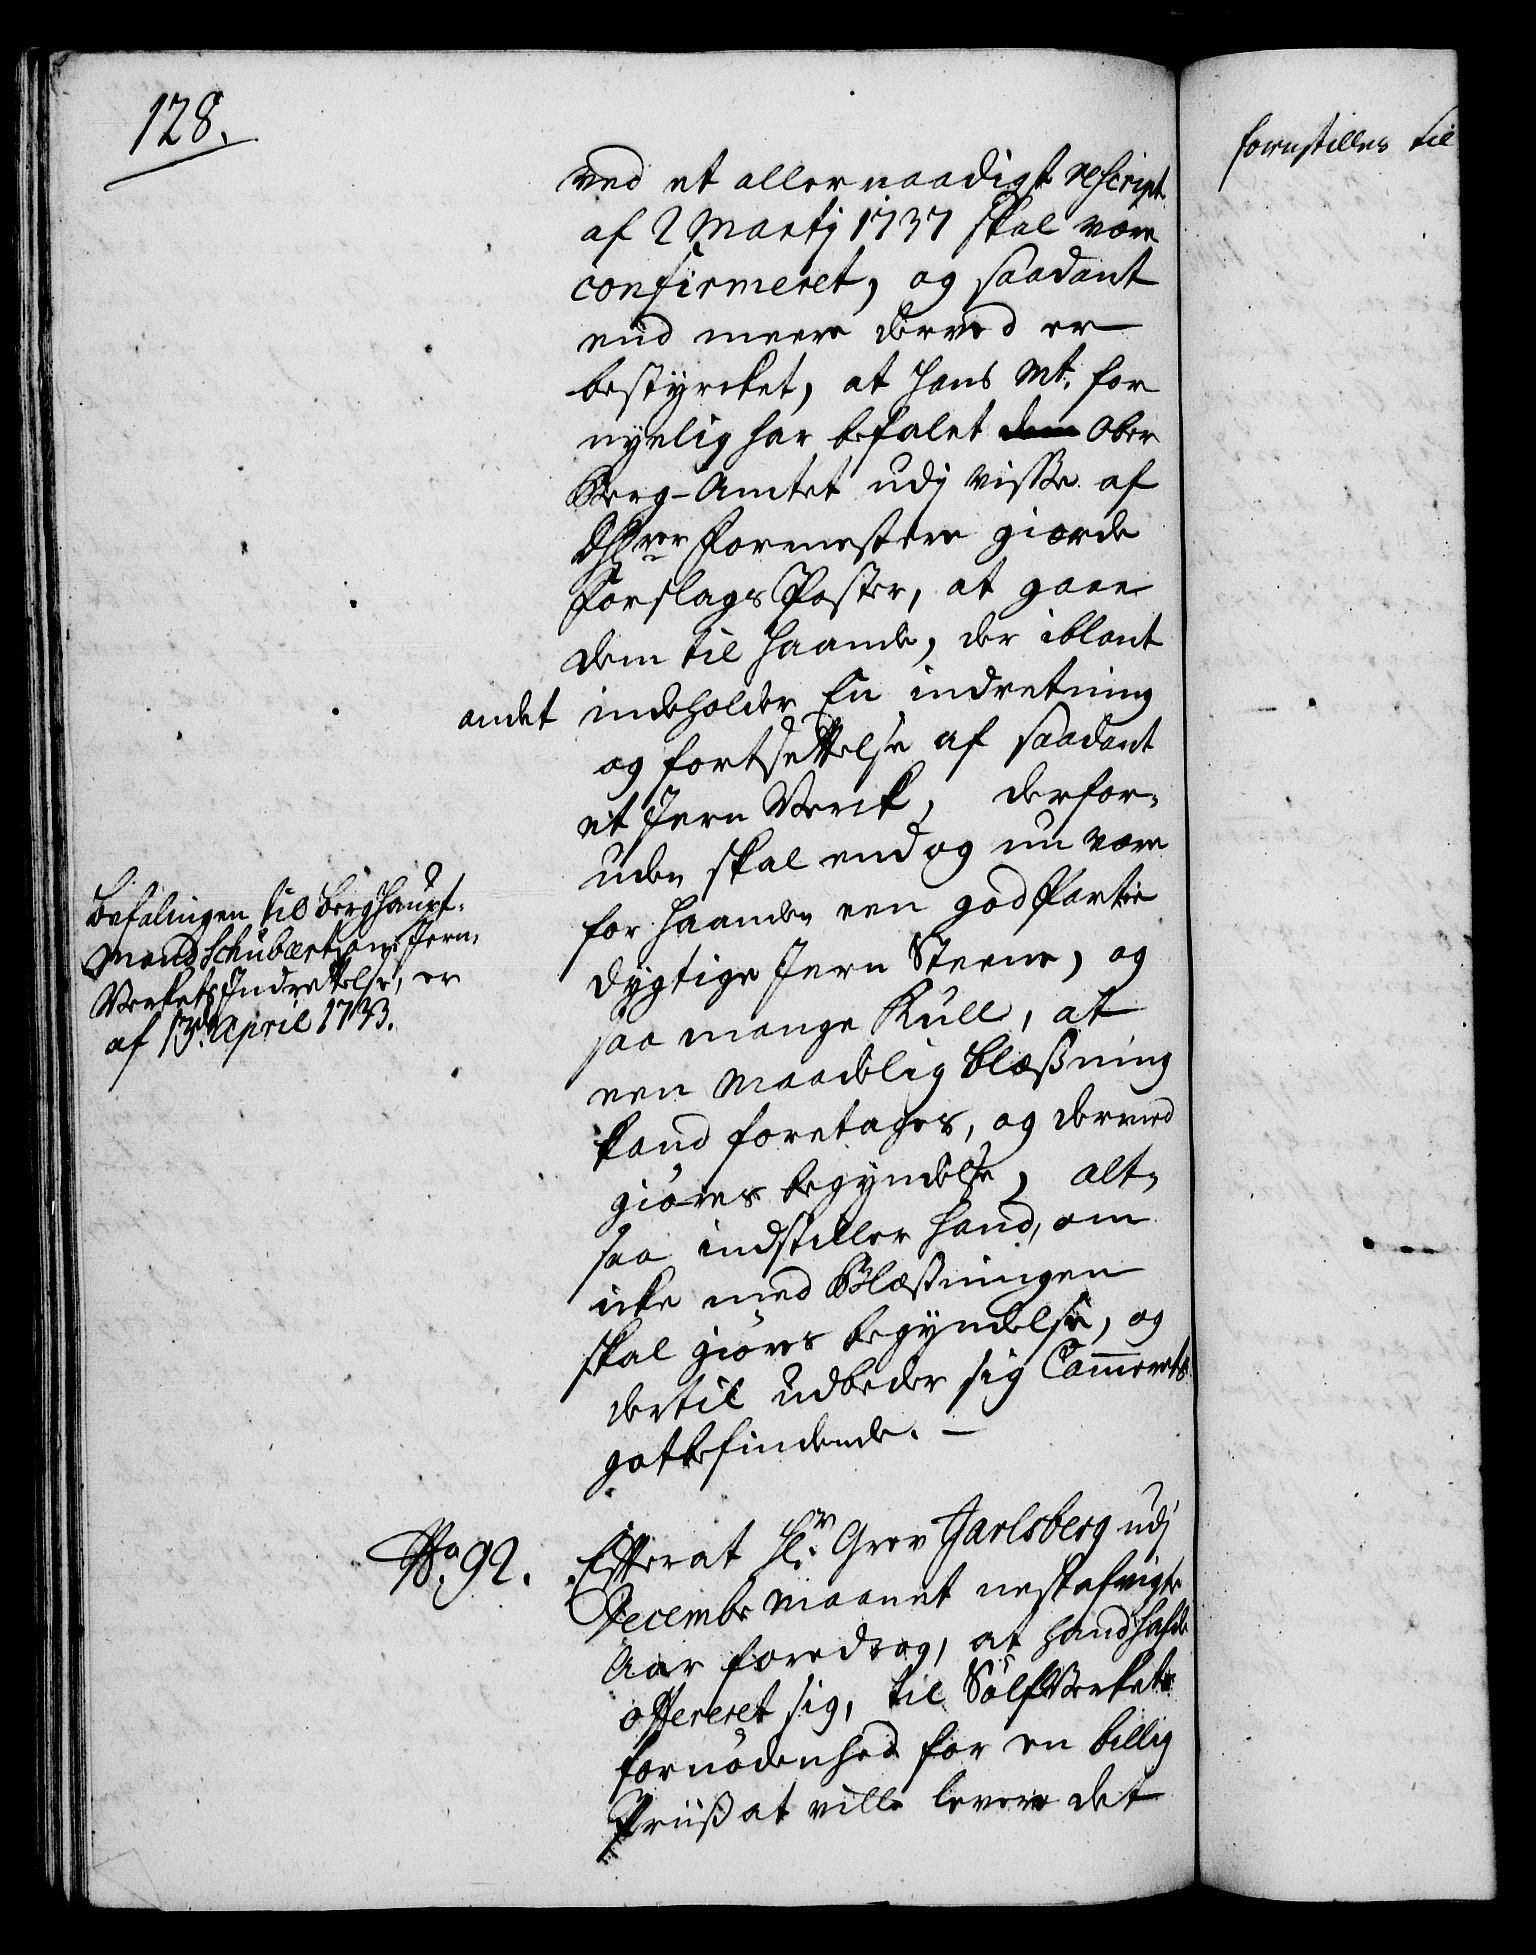 128.
ved et aller naadigst rescript
af 2 Martij 1737 skal være
confirmeret, og saadant
end meere derved er
bestyrcket, at Hans Mt. for
nyelig har befalet dem Ober
Berg-Amtet udj visse af
formestere giorde
Forslags Poster, at gaae
dem til Haande, der iblant
andet indeholder En indretning
og fortsettelse af saadant
et Jern Verck, derfor-
uden skal end og nu være
for Haanden een god Partie
dygtige Jern Steene, og
saa mange Kull, at
een maadelig Blæßning
kand foretages, og derved
giøres begyndelse, alt-
saa indstiller hand, om
icke med Blæsningen
skal giøres begyndelse, og
dertil udbeder sig Cammerets
gotbefindende. —
Befalingen til Berghaupt-
mand Schubart om Jern-
Verkets Indrettelse, er
af 13de April 1733.
No. 92. Efterat Hr. Grev Jarlsberg udj
Decembr Maanet nestafvigte
Aar foredrog, at hand hafde
offereret sig, til Sølf Verkets
fornødenhed for en billig
Priiß at ville levere det
forestilles til